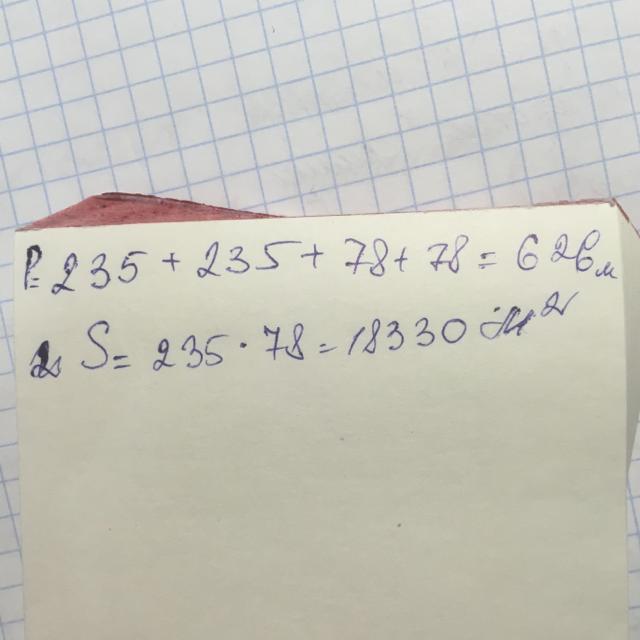 P=235+235+78+78=626м
2) S=235·78=18330 м²